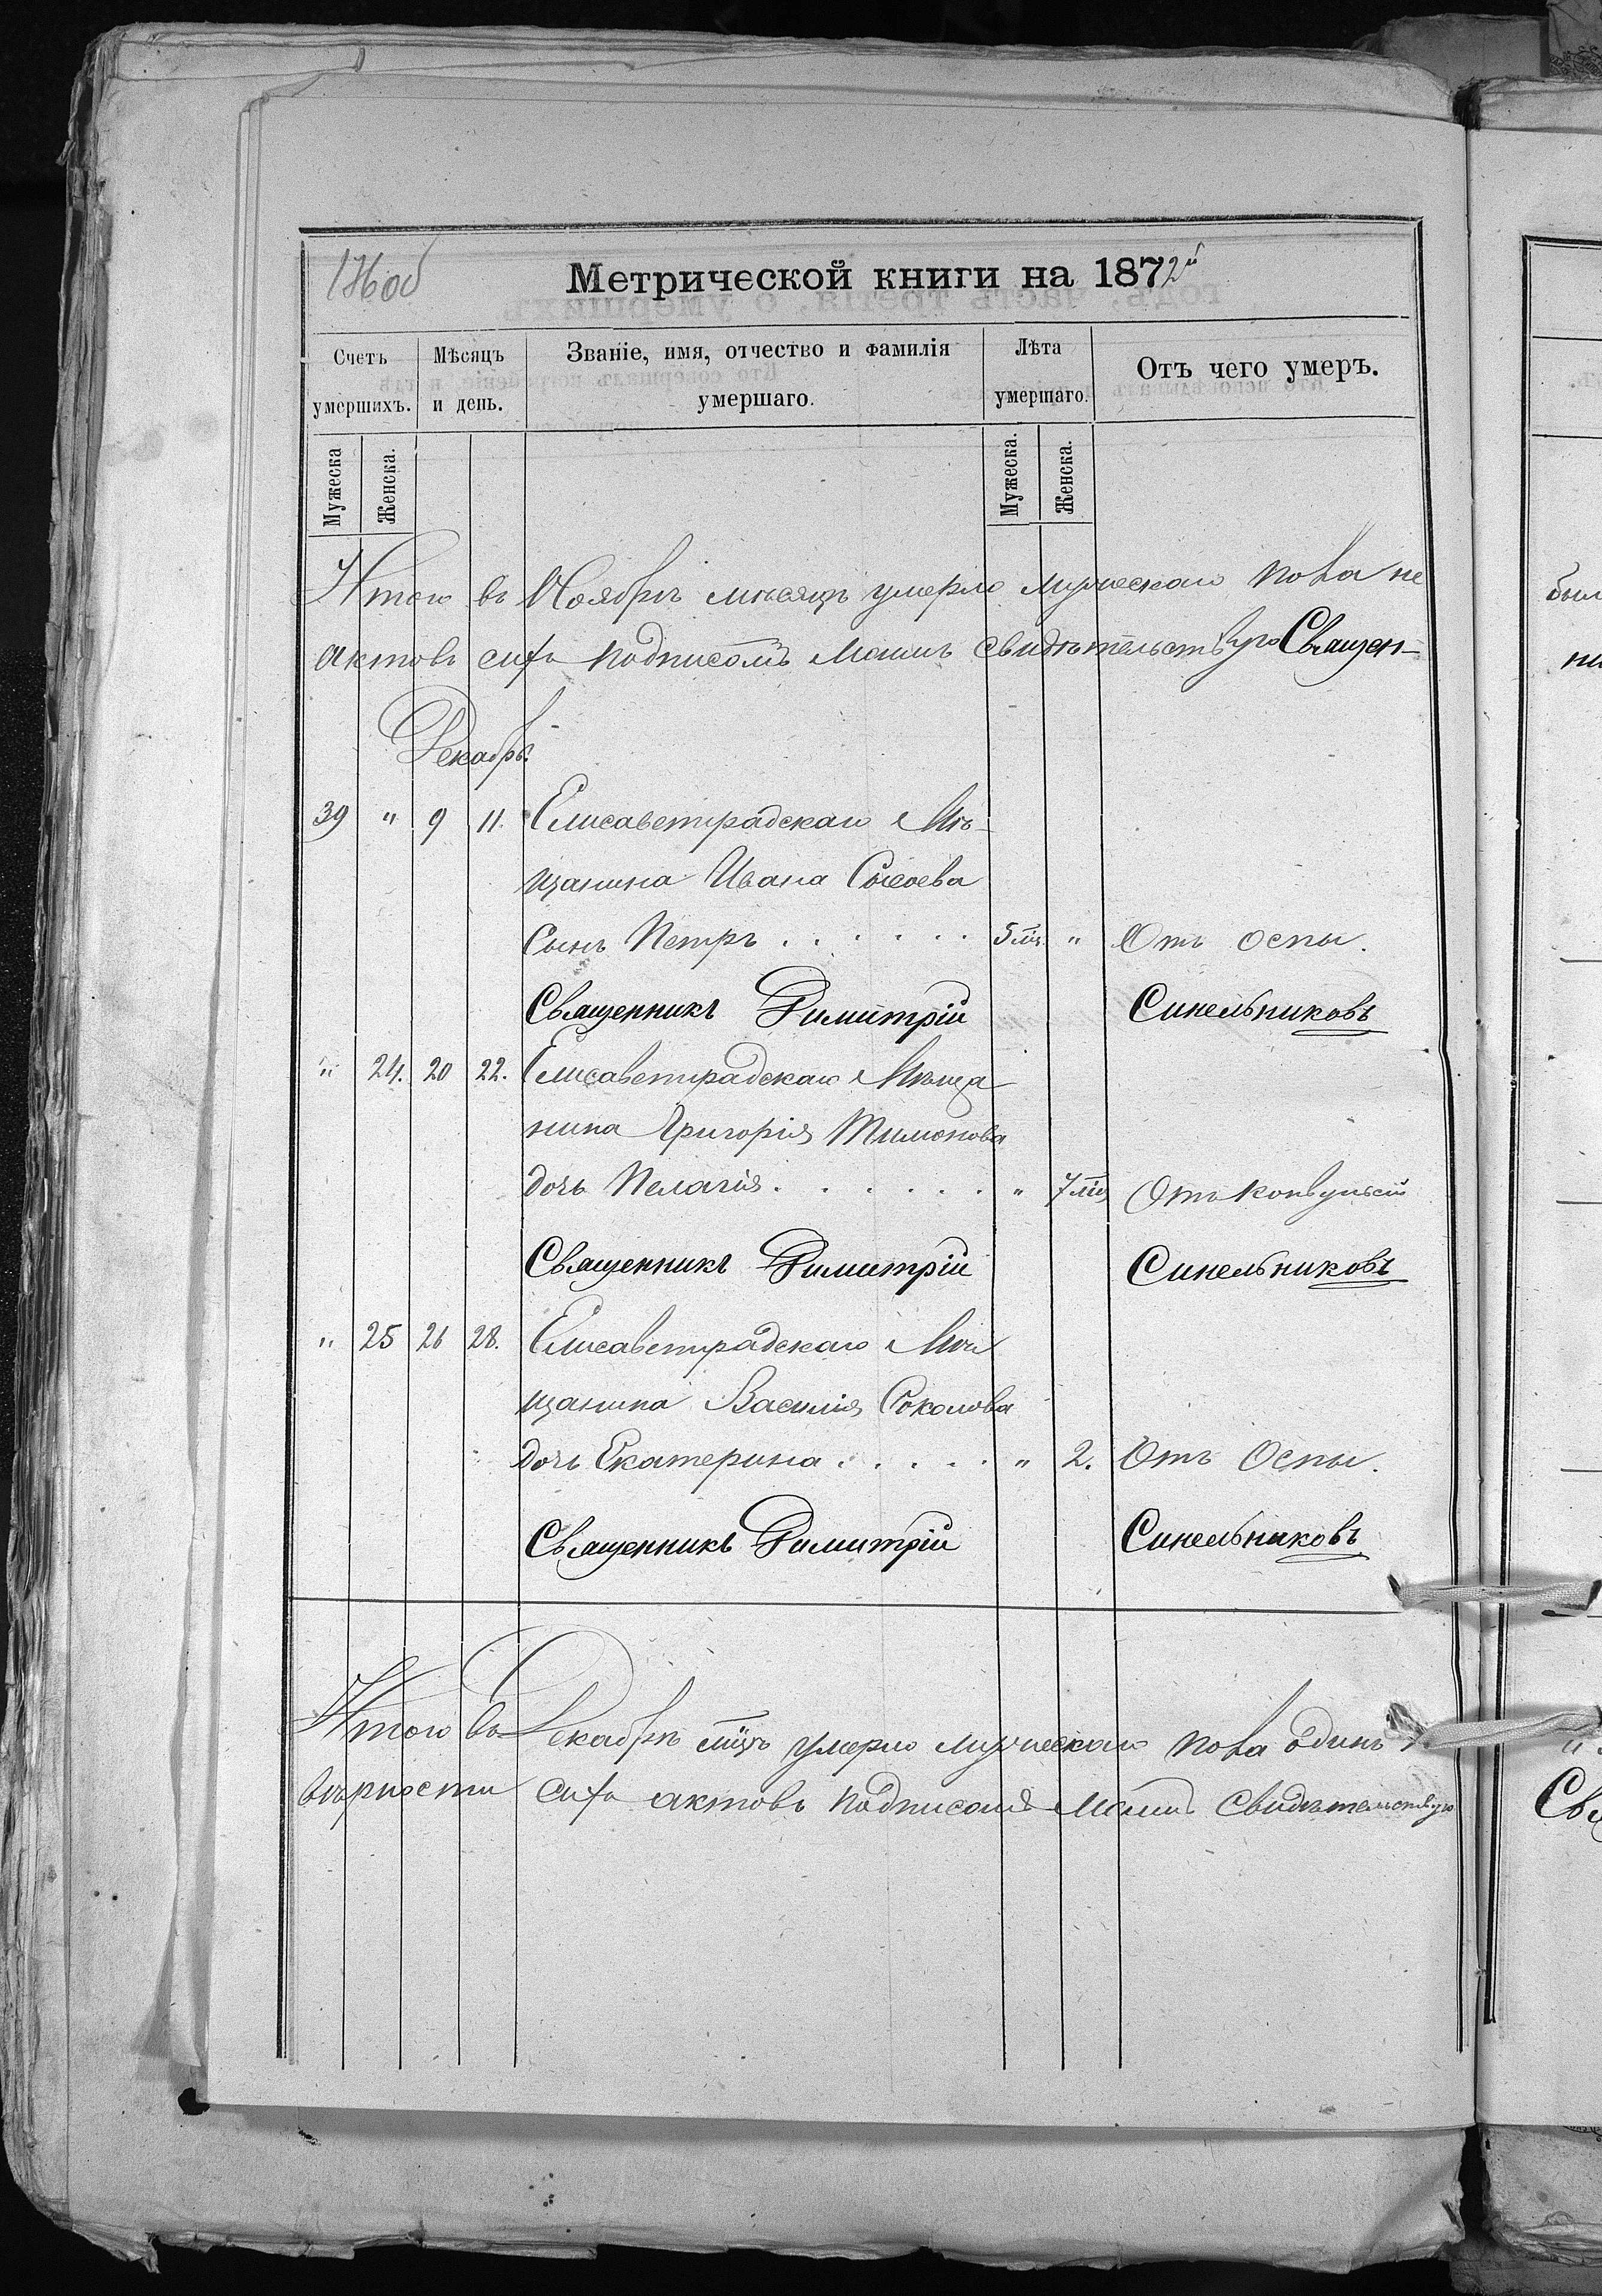 176 об
Метрической книги на 1872й
Счетъ умершихъ. Мѣсяцъ и день. Званіе, имя, отчество и фамилія умершаго. Лѣта умершаго. Отъ чего умеръ.
Мужеска Женска. Мужеска. Женска.
Итого въ Ноябрѣ мѣсяцѣ умерло мужескаго пола не
актовъ сихъ подписомъ моимъ свидѣтельствую Священ-
Декабрь.
39 " 9 11. Елисаветградскаго Мѣ-
щанина Ивана Сысоева
сынъ Петръ . . . . . . 5 мц. " Отъ оспы.
Священникъ Димитрій Синельниковъ
" 24. 20 22. Елисаветградскаго Мѣща
нина Григорія Тимонова
дочь Пелагія . . . . . . " 7 мц Отъ конвульсій
Священникъ Димитрій Синельниковъ
" 25 26 28. Елисаветградскаго Мѣ
щанина Василія Соколова
дочь Екатерина . . . . . " 2. Отъ Оспы.
Священникъ Димитрій Синельниковъ
Итого въ Декабрѣ мцѣ умерло мужескаго пола одинъ
вѣрности сихъ актовъ подписомъ моимъ свидѣтельствую
был
ни
Свя